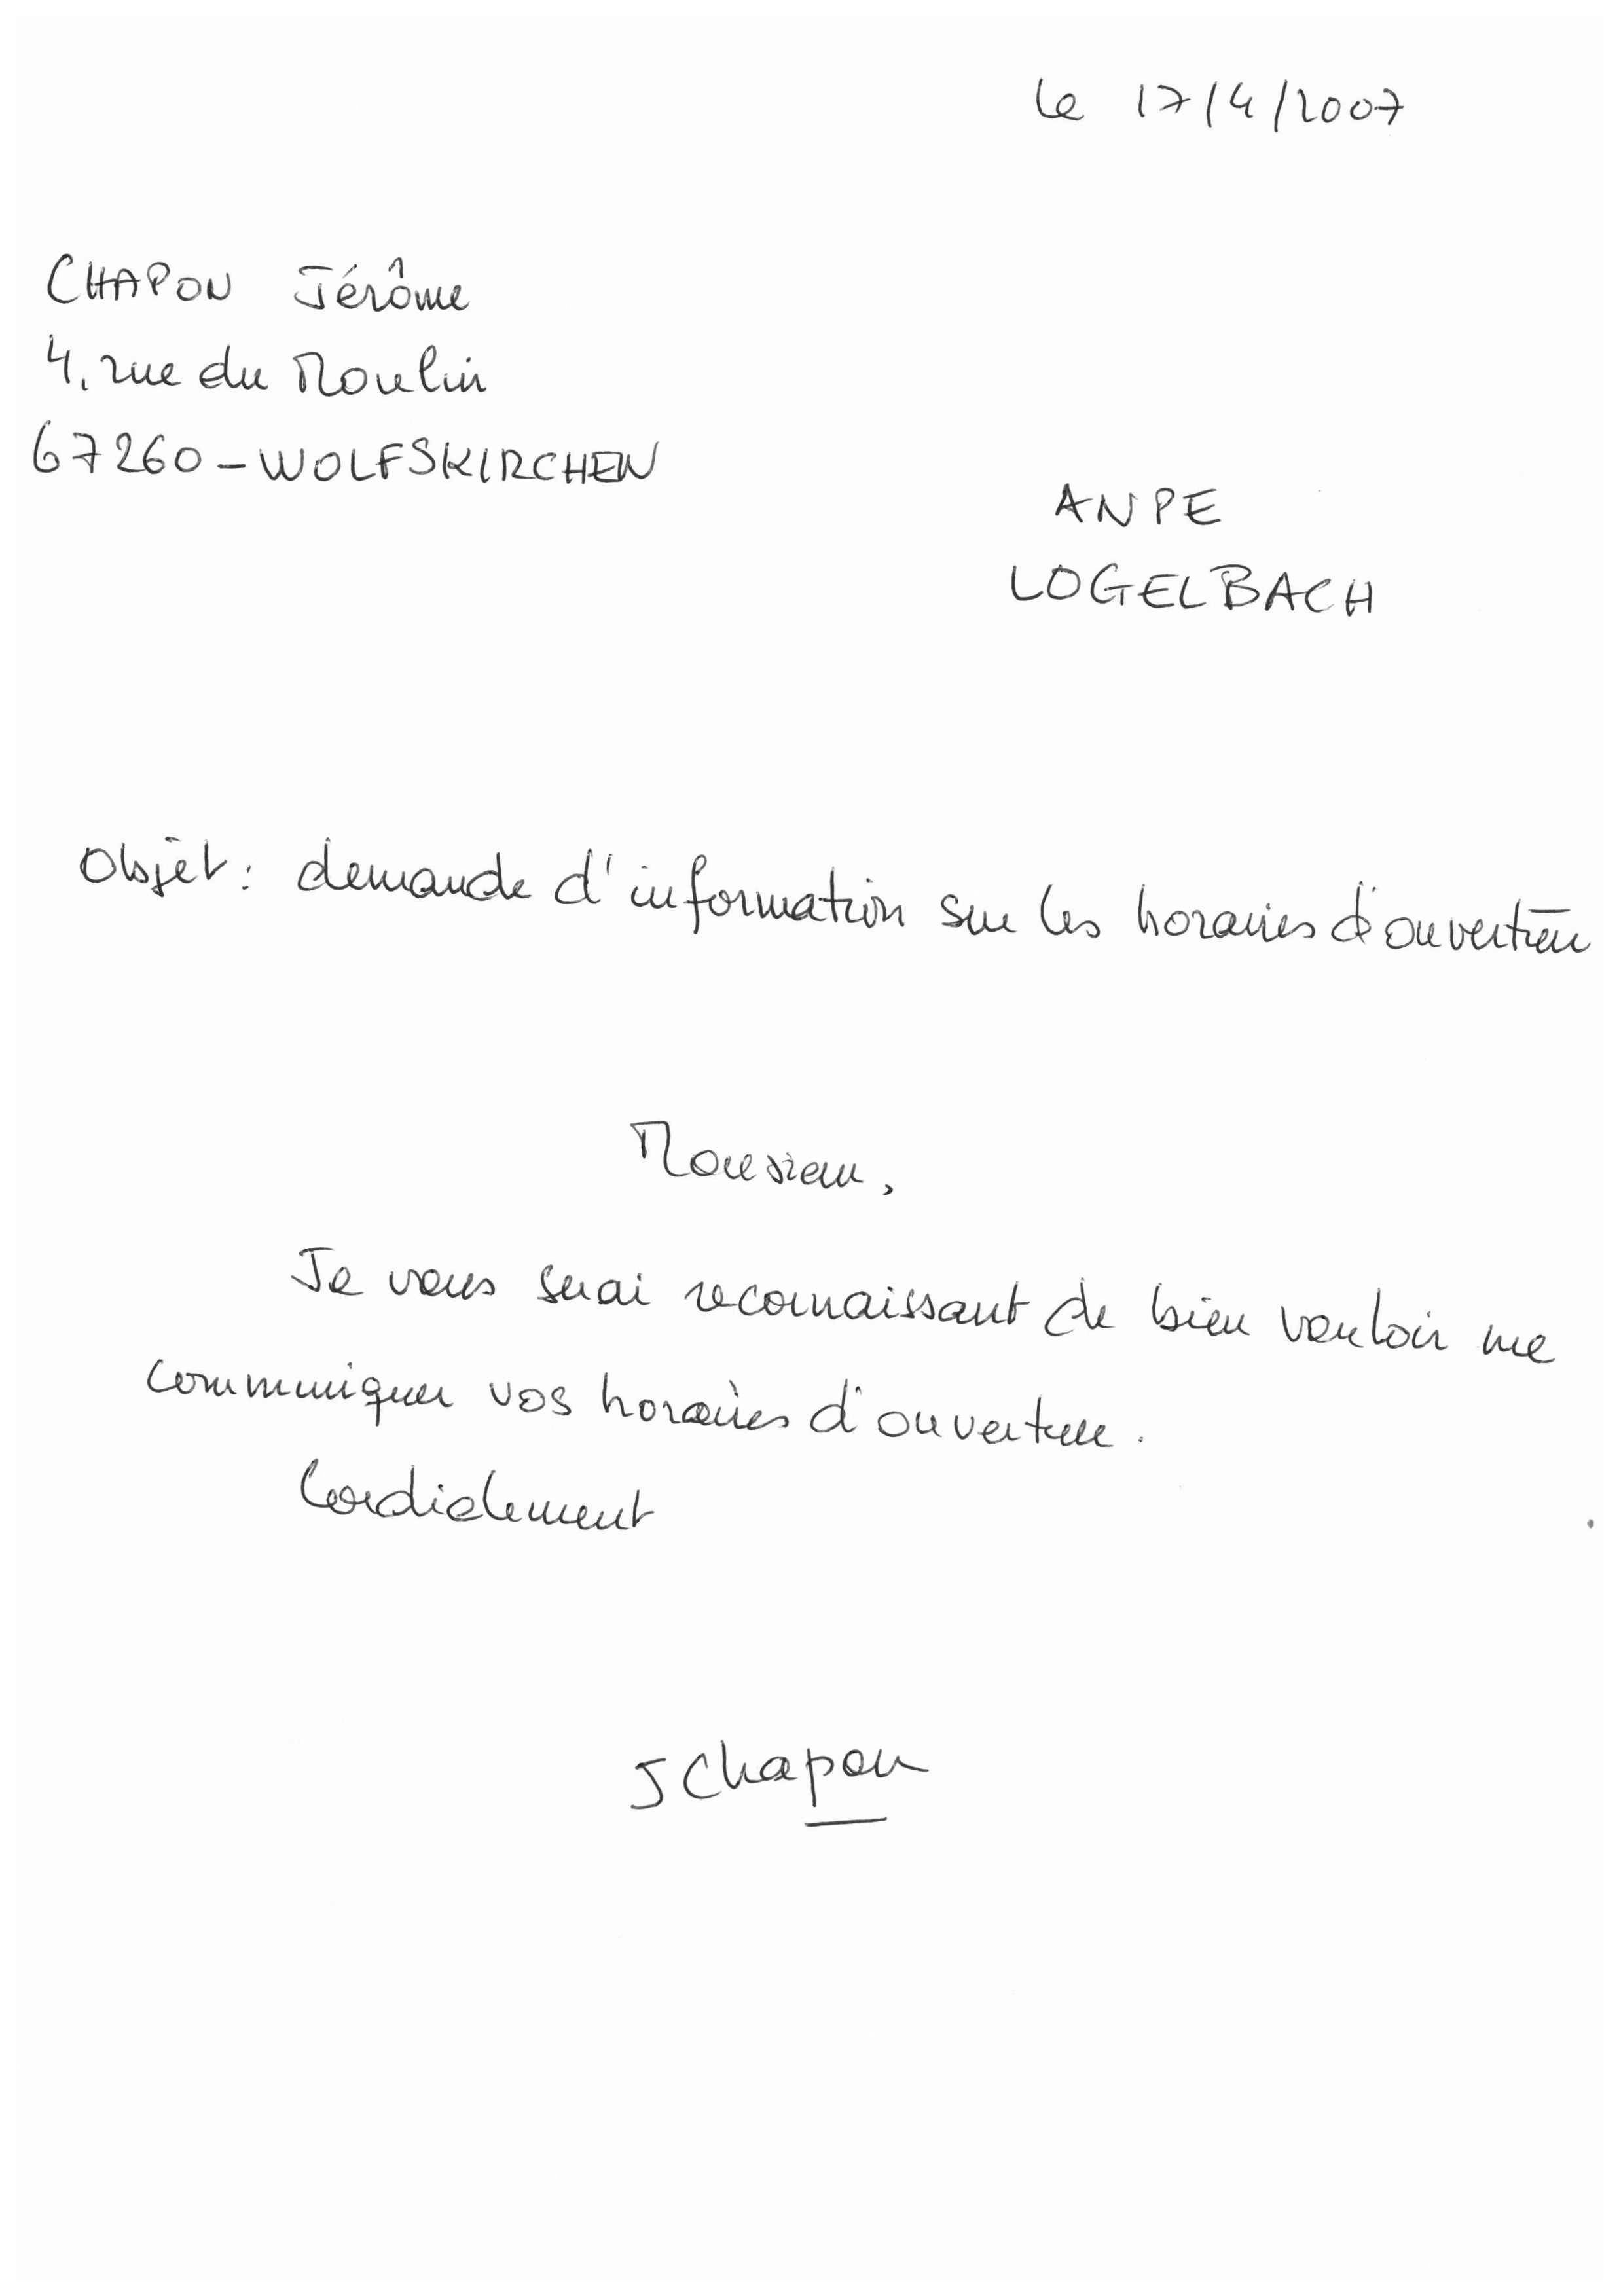 le 17/4/2007
CHAPON Jérôme
4, rue du Moulin
67260 - WOLFSKIRCHEN
ANPE
LOGELBACH
Objet : demande d'information sur les horaires d'ouverture
Monsieur,
Je vous serai reconnaissant de bien vouloir me
communiquer vos horaires d'ouverture.
Cordialement
J Chapon